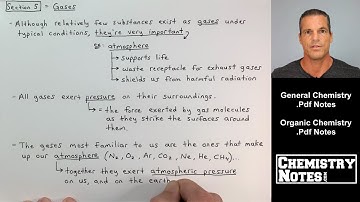 Section 5 = Gases
- Although relatively few substances exist as gases under
typical conditions, they're very important.
ex: atmosphere
supports life
waste receptacle for exhaust gases
shields us from harmful radiation
- All gases exert pressure on their surroundings.
= the force exerted by gas molecules
as they strike the surfaces around
them.
- The gases most familiar to us are the ones that make
up our atmosphere (N₂, O₂, Ar, CO₂, Ne, He, CH₄)...
together they exert atmospheric pressure
on us, and on the earth
General Chemistry
.Pdf Notes
Organic Chemistry
.Pdf Notes
CHEMISTRY
NOTES.COM